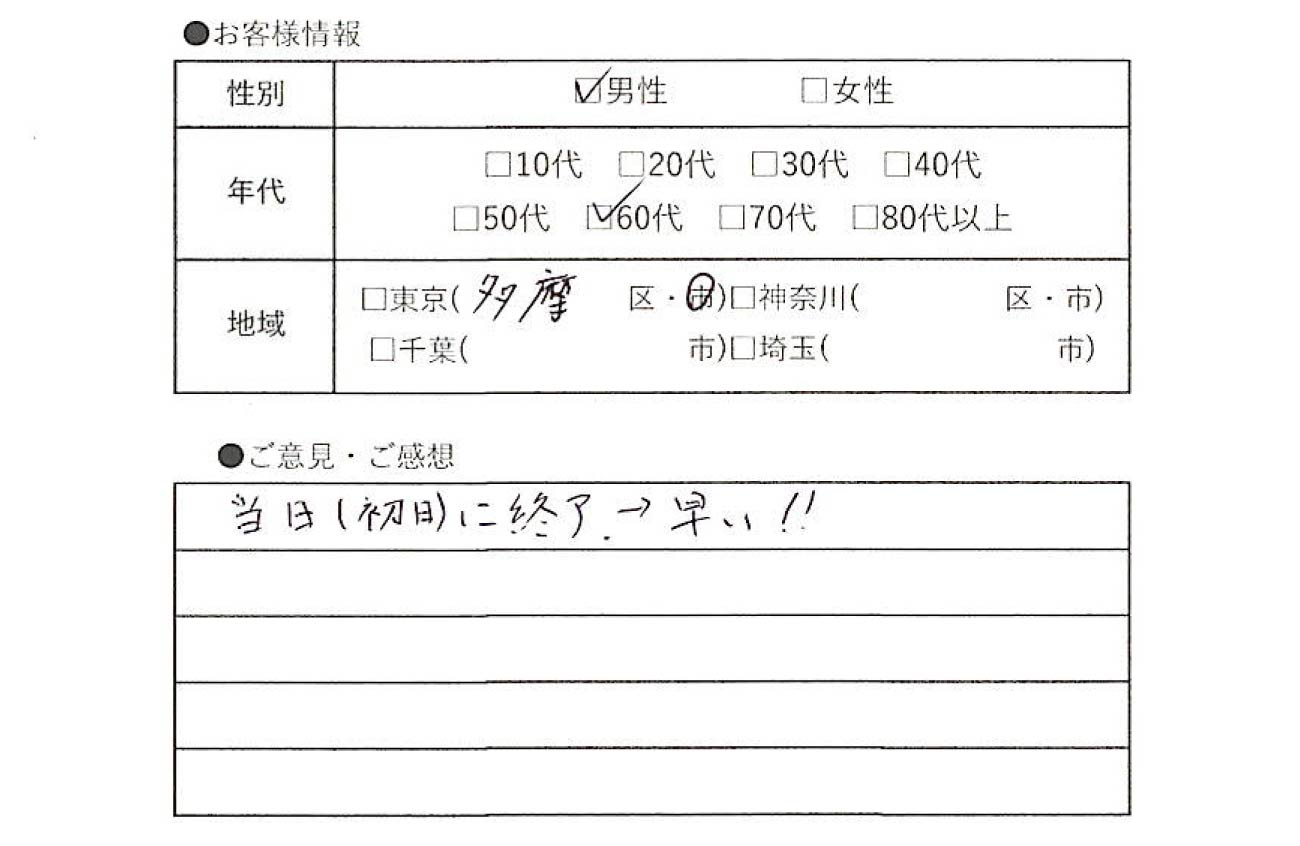 ●お客様情報
性別 ☑男性 □女性
年代 □10代 □20代 □30代 □40代
□50代 ☑60代 □70代 □80代以上
地域 □東京( 多摩 区・市)□神奈川( 区・市)
□千葉( 市)□埼玉( 市)
●ご意見・ご感想
当日(初日)に終了.→早い!!